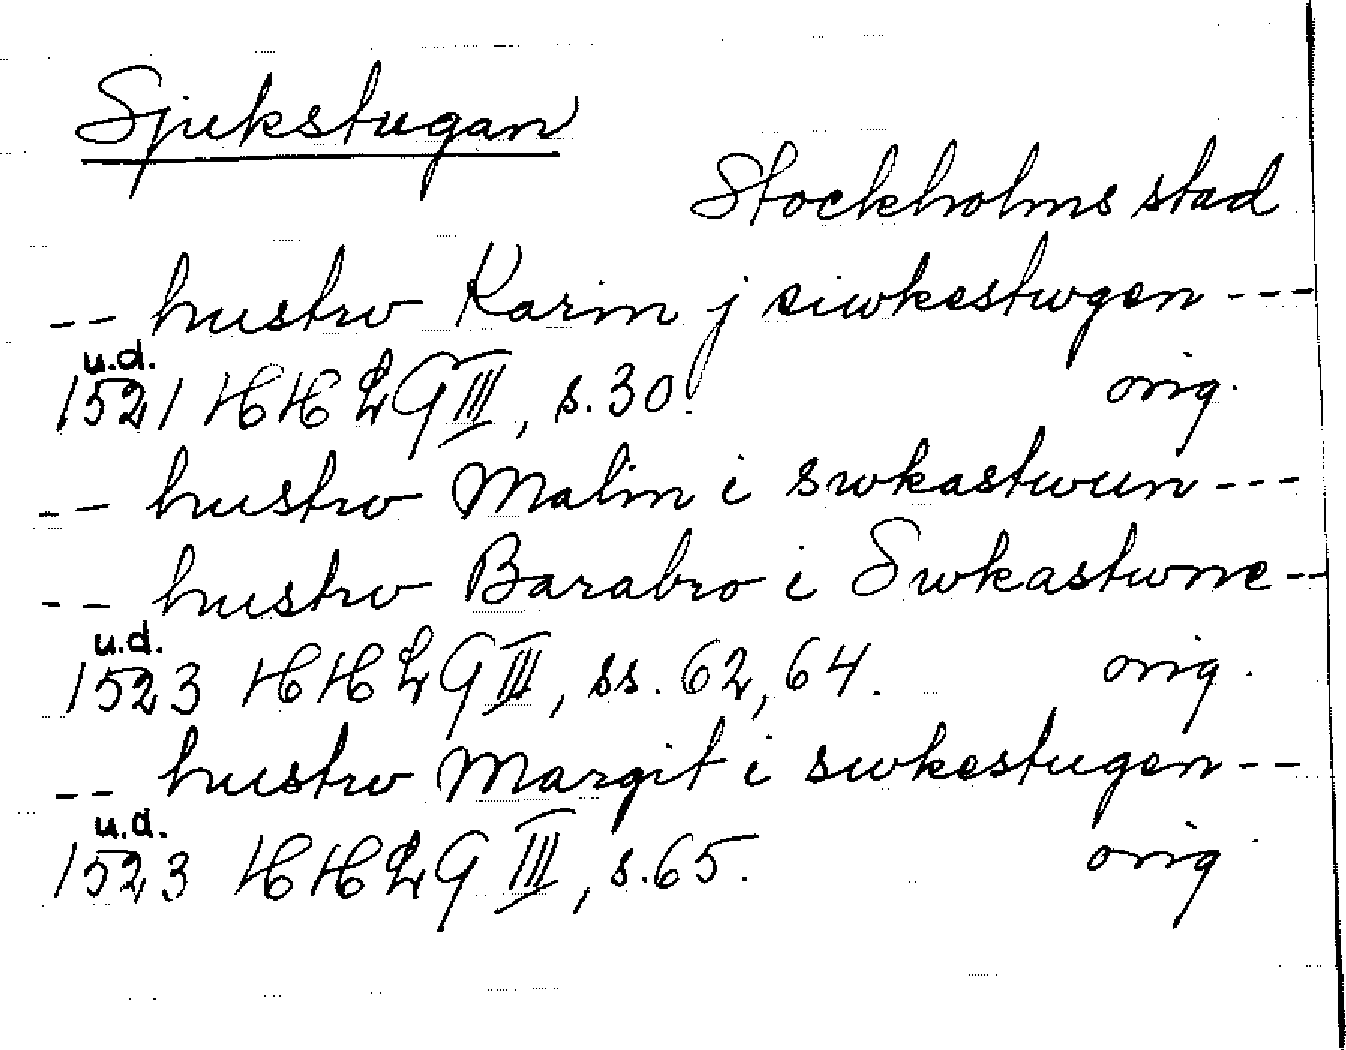 Sjukstugan
Stockholms stad
-- hustrv Karin j siwkestwgen ---
u.d.
1521 HHLG III, s. 30. orig.
-- hustrv Malin i swkastwun ---
-- hustrv Barabro i Swkastwne --
u.d.
1523 HHLG III, ss. 62, 64. orig.
-- hustrv Margit i swkestugen --
u.d.
1523 HHLG III, s. 65. orig.